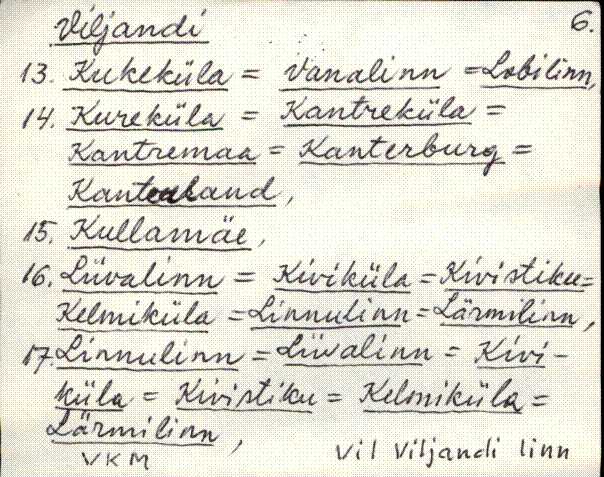 Viljandi 6.
13. Kukeküla = Vanalinn = Lobilinn,
14. Kureküla = Kantreküla =
Kantremaa = Kanterburg =
Kanterland,
15. Kullamäe,
16. Liivalinn = Kiviküla = Kivistiku =
Kelmiküla = Linnulinn = Lärmilinn,
17. Linnulinn = Liivalinn = Kivi-
küla = Kivistiku = Kelmiküla =
Lärmilinn,
VKM Vil Viljandi linn